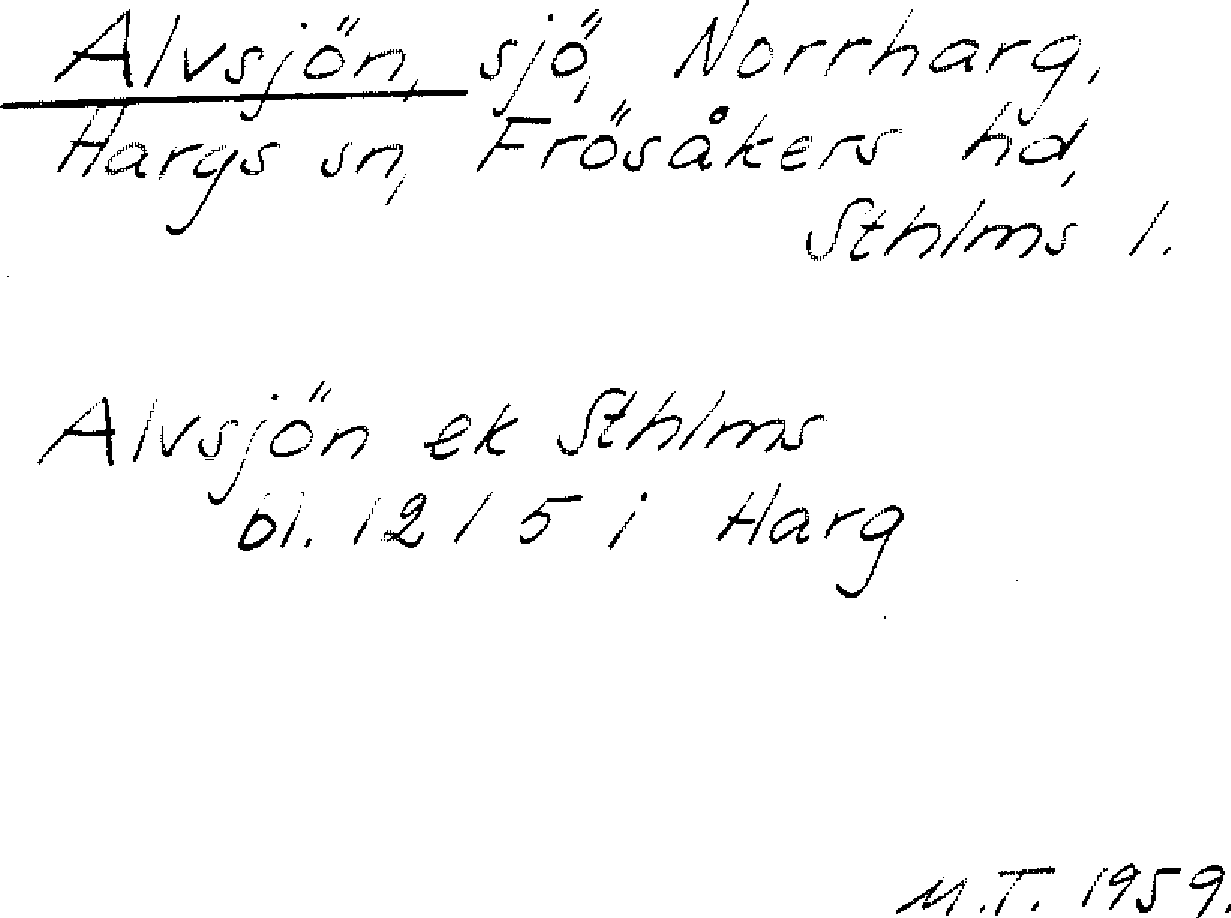 Alvsjön, sjö, Norrharg,
Hargs sn, Frösåkers hd,
Sthlms l.
Alvsjön ek Sthlms
bl. 121 5 i Harg
M.T. 1959.